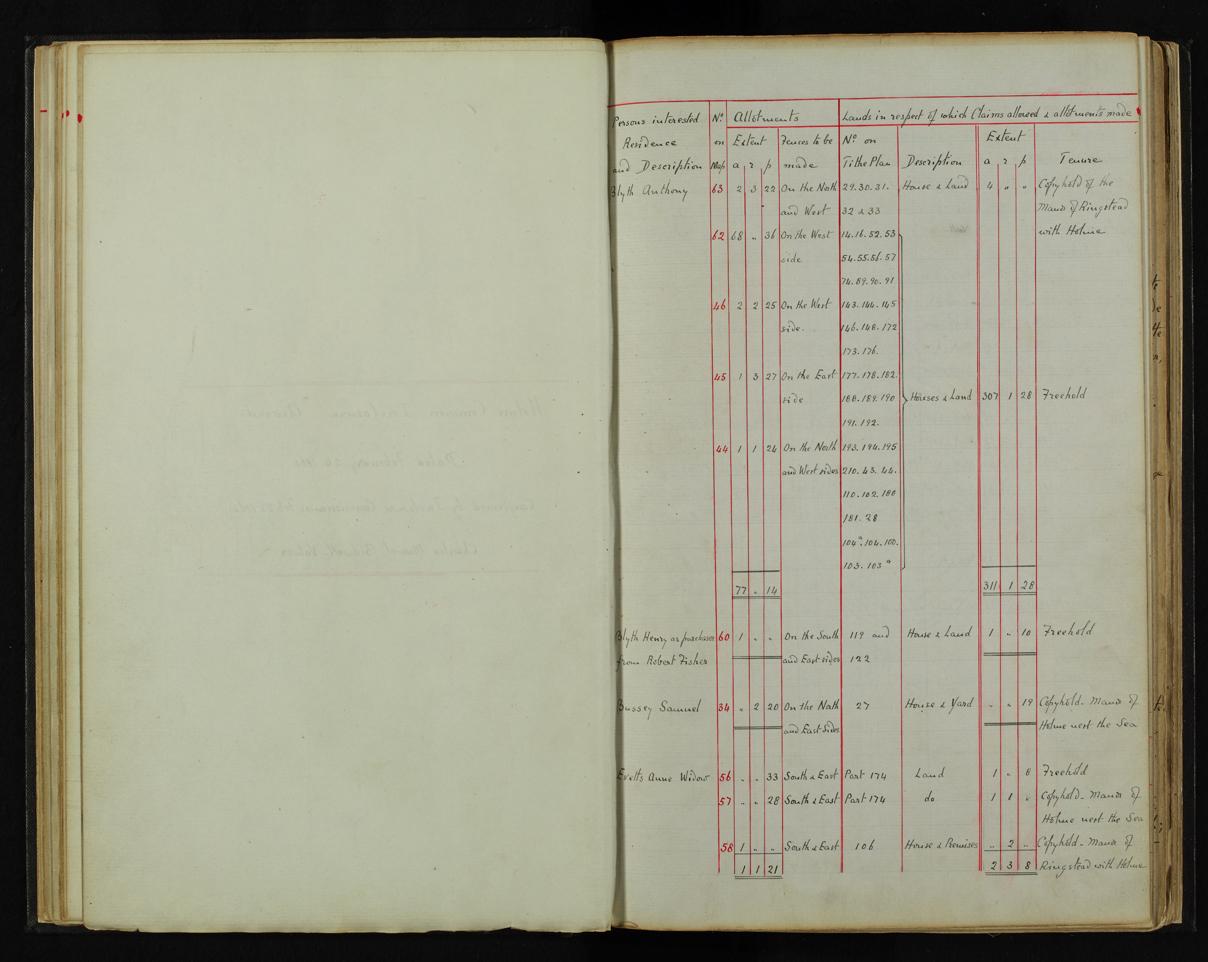 Persons interested | No | Allotments | Lands in respect of which Claims allowed & allotments made
Residence | on | Extent | Fences to be | No on | Extent
and Description | Map | a | r | p | made | Tithe Plan | Description | a | r | p | Tenure
Blyth Anthony | 63 | 2 | 3 | 22 | On the North | 29.30.31. | House & Land | 4 | " | " | Copyhold of the
and West | 32 & 33 | Manor of Ringstead
62 | 68 | " | 36 | On the West | 14.16.52.53 | with Holme
side | 54.55.56.57
74.89.90.91
46 | 2 | 2 | 25 | On the West | 143.144.145
side. | 146.148.172
173.176.
45 | 1 | 3 | 27 | On the East | 177.178.182.
side | 188.189.190 | Houses & Land | 307 | 1 | 28 | Freehold
191.192.
44 | 1 | 1 | 24 | On the North | 193.194.195
and West sides | 210.43.44.
110.102.180
181.28
104a.104.100.
103.103a
77 | " | 14 | 311 | 1 | 28
Blyth Henry as purchaser | 60 | 1 | " | " | On the South | 119 and | House & Land | 1 | " | 10 | Freehold
from Robert Fisher | and East sides | 122
Bussey Samuel | 34 | " | 2 | 20 | On the North | 27 | House & Yard | " | " | 19 | Copyhold - Manor of
and East Sides | Holme next the Sea
Evetts Anne Widow | 56 | " | " | 33 | South & East | Part 174 | Land | 1 | " | 8 | Freehold
57 | " | " | 28 | South & East | Part 174 | do | 1 | 1 | " | Copyhold - Manor of
Holme next the Sea
58 | 1 | " | " | South & East | 106 | House & Premises | " | 2 | " | Copyhold - Manor of
1 | 1 | 21 | 2 | 3 | 8 | Ringstead with Holme